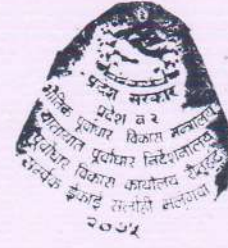 प्रदेश सरकार
प्रदेश नं २
भौतिक पूर्वाधार विकास मन्त्रालय
यातायात पूर्वाधार निर्देशनालय
पूर्वाधार विकास कार्यालय
सम्पर्क ईकाई सर्लाही मलंगवा
२०७५